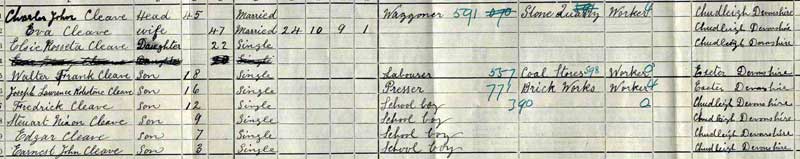 Charles John Cleave Head 45 Married Waggoner 591 Stone Quarry Worker Chudleigh Devonshire
Eva Cleave wife 47 Married 24 10 9 1 Chudleigh Devonshire
Elsie Rosseta Cleave Daughter 22 Single Chudleigh Devonshire
Cleave Daughter Single
Walter Frank Cleave Son 18 Single Labourer 557 Coal Stores 598 Worker Exeter Devonshire
Joseph Lawrence Cleave Son 16 Single Presser 771 Brick Works Worker Exeter Devonshire
Fredrick Cleave Son 12 Single School boy 390 0 Chudleigh Devonshire
Stuart Nixon Cleave Son 9 Single School boy Chudleigh Devonshire
Edgar Cleave Son 7 Single School boy Chudleigh Devonshire
Earnest John Cleave Son 3 Single School boy Chudleigh Devonshire